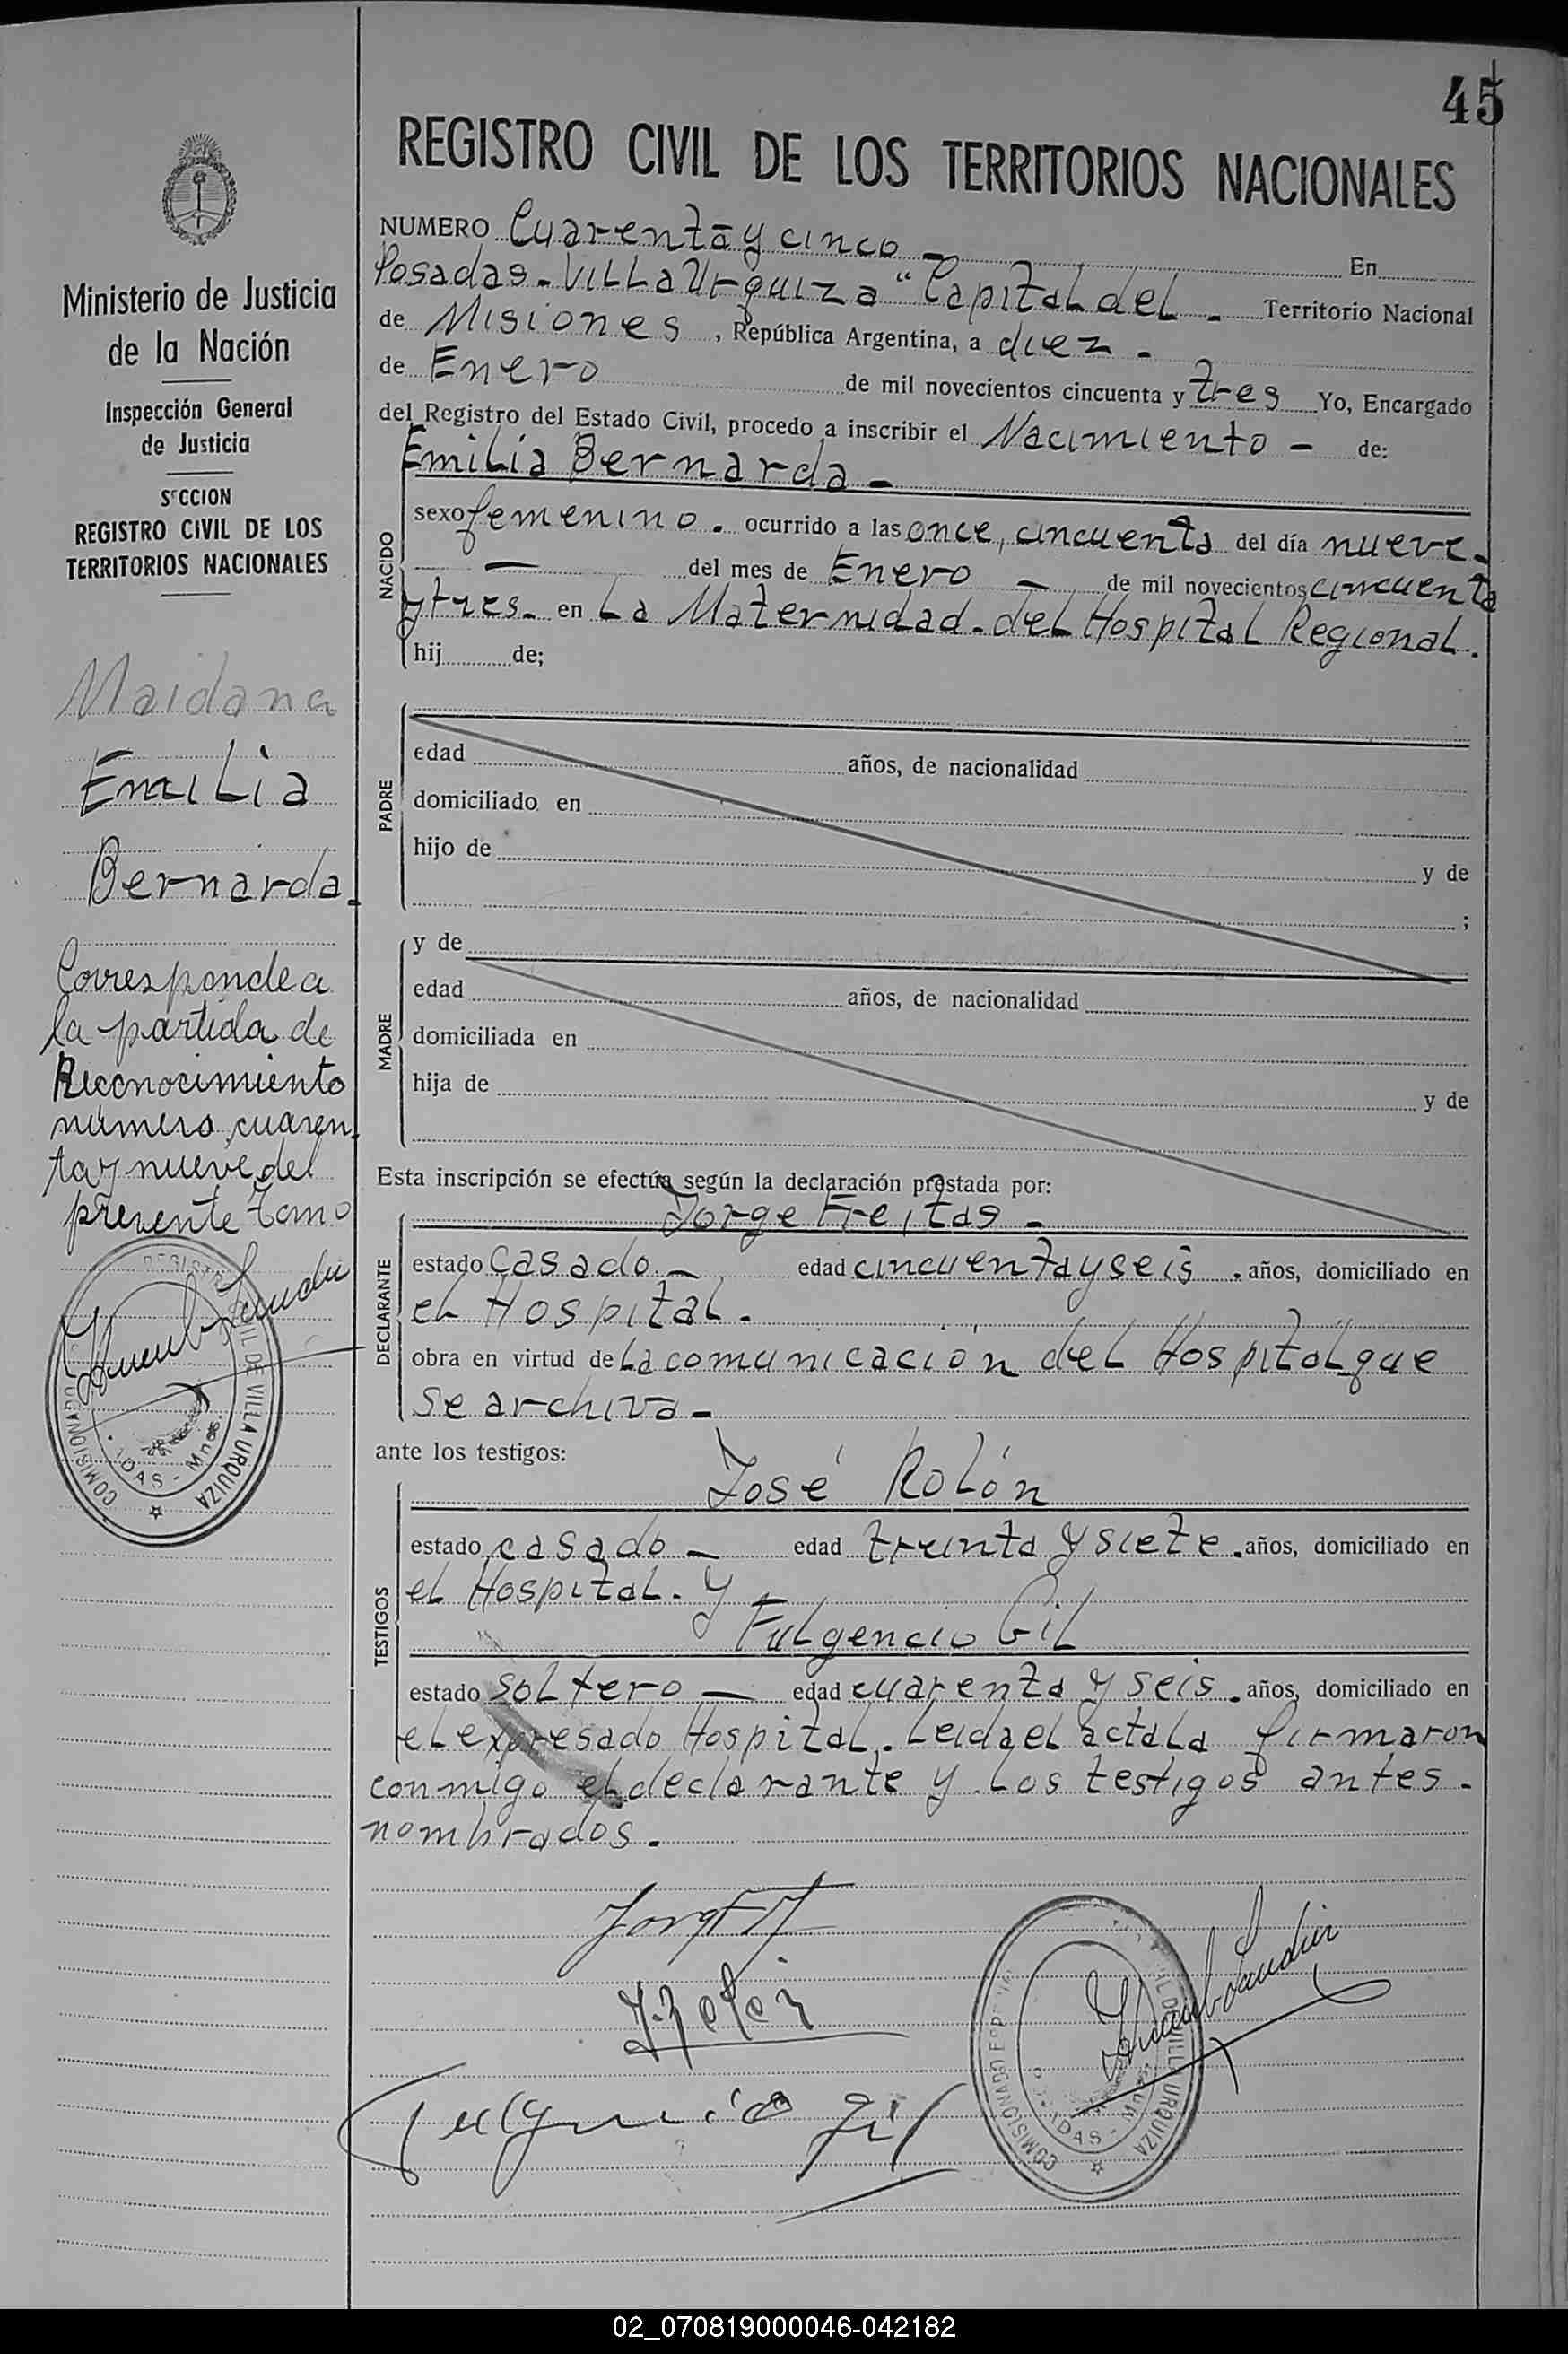 45
REGISTRO CIVIL DE LOS TERRITORIOS NACIONALES
NUMERO Cuarenta y cinco _ En
Posadas - Villa Urquiza " Capital del - Territorio Nacional
de Misiones, República Argentina, a diez -
de Enero de mil novecientos cincuenta y tres Yo, Encargado
del Registro del Estado Civil, procedo a inscribir el Nacimiento - de:
Emilia Bernarda -
NACIDO
sexo femenino. ocurrido a las once, cincuenta del día nueve -
— del mes de Enero — de mil novecientos cincuenta
y tres - en La Maternidad - del Hospital Regional.
hij de;
PADRE
edad años, de nacionalidad
domiciliado en
hijo de y de
;
MADRE
y de
edad años, de nacionalidad
domiciliada en
hija de y de
Esta inscripción se efectúa según la declaración prestada por:
Jorge Freitas -
DECLARANTE
estado casado - edad cincuenta y seis . años, domiciliado en
el Hospital.
obra en virtud de La comunicación del Hospital que
se archiva -
ante los testigos:
José Rolón
TESTIGOS
estado casado - edad treinta y siete . años, domiciliado en
el Hospital. y
Fulgencio Gil
estado soltero — edad cuarenta y seis . años, domiciliado en
el expresado Hospital. Leida el acta La firmaron
conmigo el declarante y los testigos antes -
nombrados.
Fulgencio Gil
COMISIONADO VILLA URQUIZA
Ministerio de Justicia
de la Nación
Inspección General
de Justicia
SECCION
REGISTRO CIVIL DE LOS
TERRITORIOS NACIONALES
Maidana
Emilia
Bernarda -
Corresponde a
la partida de
Reconocimiento
número cuaren
ta y nueve del
presente tomo
REGISTRO CIVIL DE VILLA URQUIZA
COMISIONADO
DAS - Mnes.
02_070819000046-042182